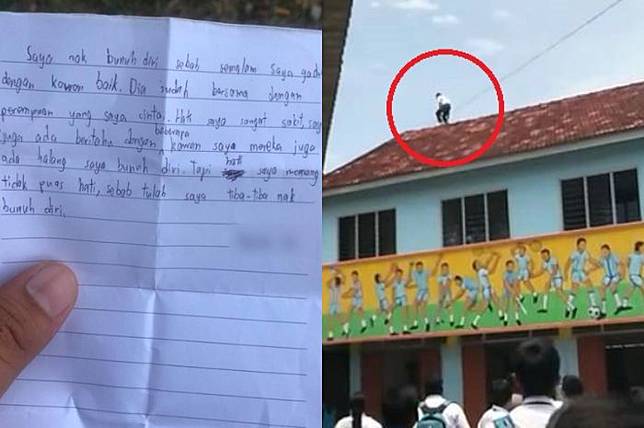 Saya nak bunuh diri sebab semalam saya gaduh
dengan kawan baik. Dia sudah bersama dengan
perempuan yang saya cinta. Hati saya sangat sakit, saya
juga ada beritahu dengan beberapa kawan saya mereka juga
ada halang saya bunuh diri. Tapi hati saya memang
tidak puas hati, sebab itulah saya tiba-tiba nak
bunuh diri.